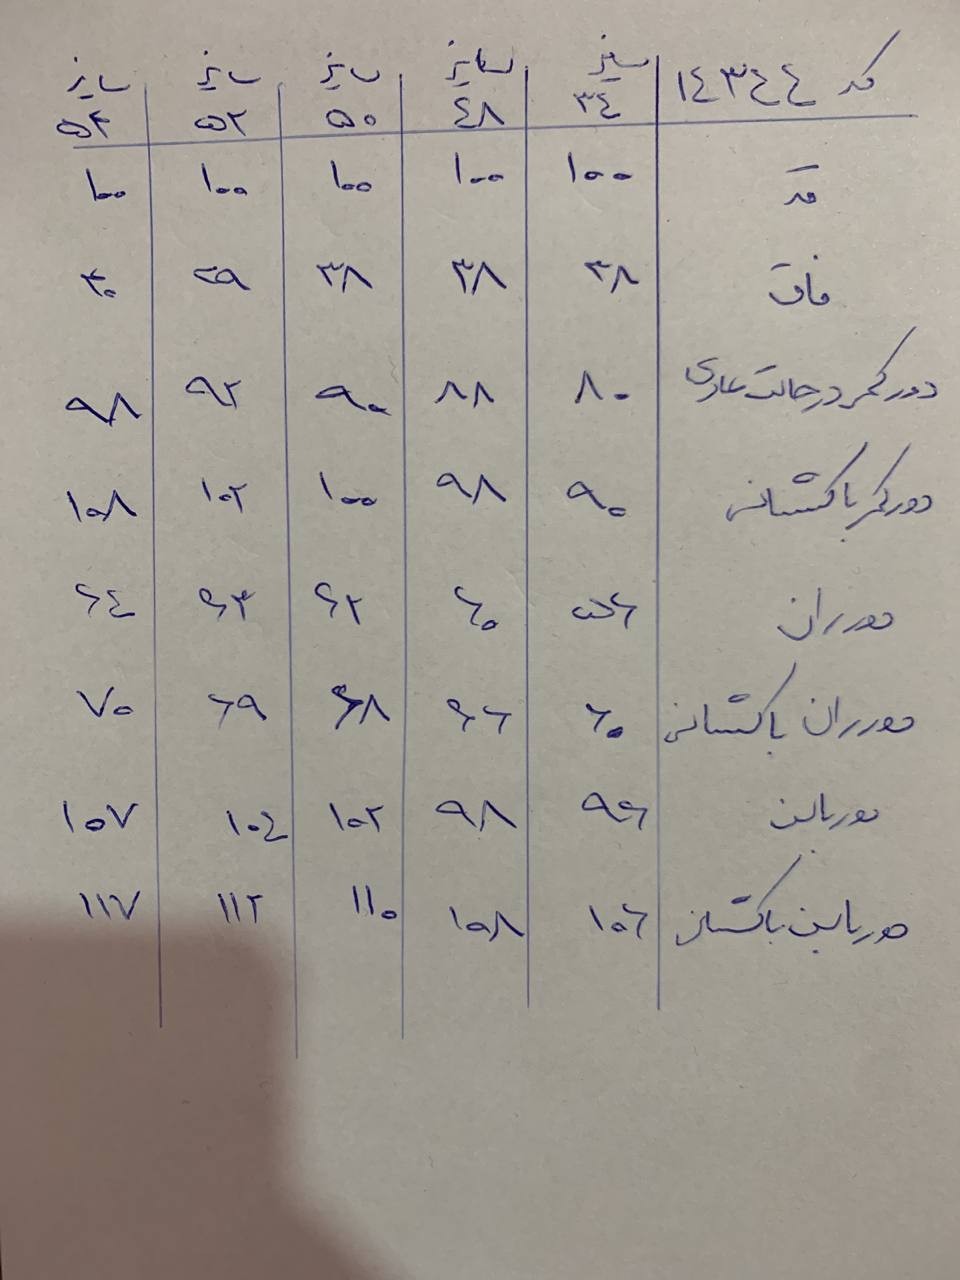 کد ۱۴۳۴۴ سایز ۳۴ سایز ۴۸ سایز ۵۰ سایز ۵۲ سایز ۵۴
قد ۱۰۰ ۱۰۰ ۱۰۰ ۱۰۰ ۱۰۰
فاق ۳۸ ۳۸ ۳۸ ۳۹ ۴۰
دور کمر در حالت عادی ۸۰ ۸۸ ۹۰ ۹۲ ۹۸
دور کمر با کشسانی ۹۰ ۹۸ ۱۰۰ ۱۰۲ ۱۰۸
دور ران ۵۶ ۶۰ ۶۲ ۶۳ ۶۴
دور ران با کشسانی ۶۰ ۶۶ ۶۸ ۶۹ ۷۰
دور باسن ۹۶ ۹۸ ۱۰۲ ۱۰۴ ۱۰۷
دور باسن با کشسانی ۱۰۶ ۱۰۸ ۱۱۰ ۱۱۲ ۱۱۷